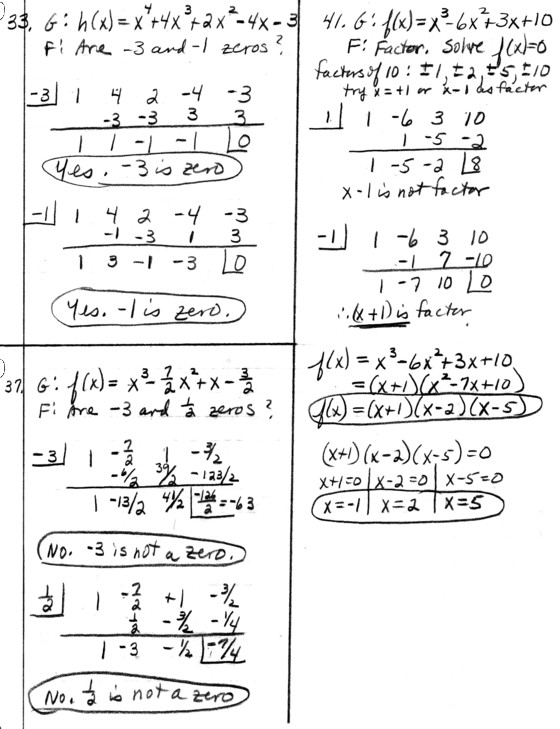 33. G: h(x) = x⁴+4x³+2x²-4x-3
F: Are -3 and -1 zeros?
-3| 1 4 2 -4 -3
-3 -3 3 3
1 1 -1 -1 |0
Yes. -3 is zero
-1| 1 4 2 -4 -3
-1 -3 1 3
1 3 -1 -3 |0
Yes. -1 is zero.
37. G: f(x) = x³ - 7/2 x² + x - 3/2
F: Are -3 and 1/2 zeros?
-3| 1 -7/2 1 -3/2
-6/2 39/2 -123/2
1 -13/2 41/2 |-126/2 = -63
No. -3 is not a zero.
1/2| 1 -7/2 +1 -3/2
1/2 -3/2 -1/4
1 -3 -1/2 |-7/4
No. 1/2 is not a zero
41. G: f(x) = x³-6x²+3x+10
F: Factor. Solve f(x)=0
factors of 10: ±1, ±2, ±5, ±10
try x = +1 or x-1 as factor
1| 1 -6 3 10
1 -5 -2
1 -5 -2 |8
x-1 is not factor
-1| 1 -6 3 10
-1 7 -10
1 -7 10 |0
∴ (x+1) is factor
f(x) = x³-6x²+3x+10
= (x+1)(x²-7x+10)
f(x) = (x+1)(x-2)(x-5)
(x+1)(x-2)(x-5)=0
x+1=0 | x-2=0 | x-5=0
x=-1 | x=2 | x=5